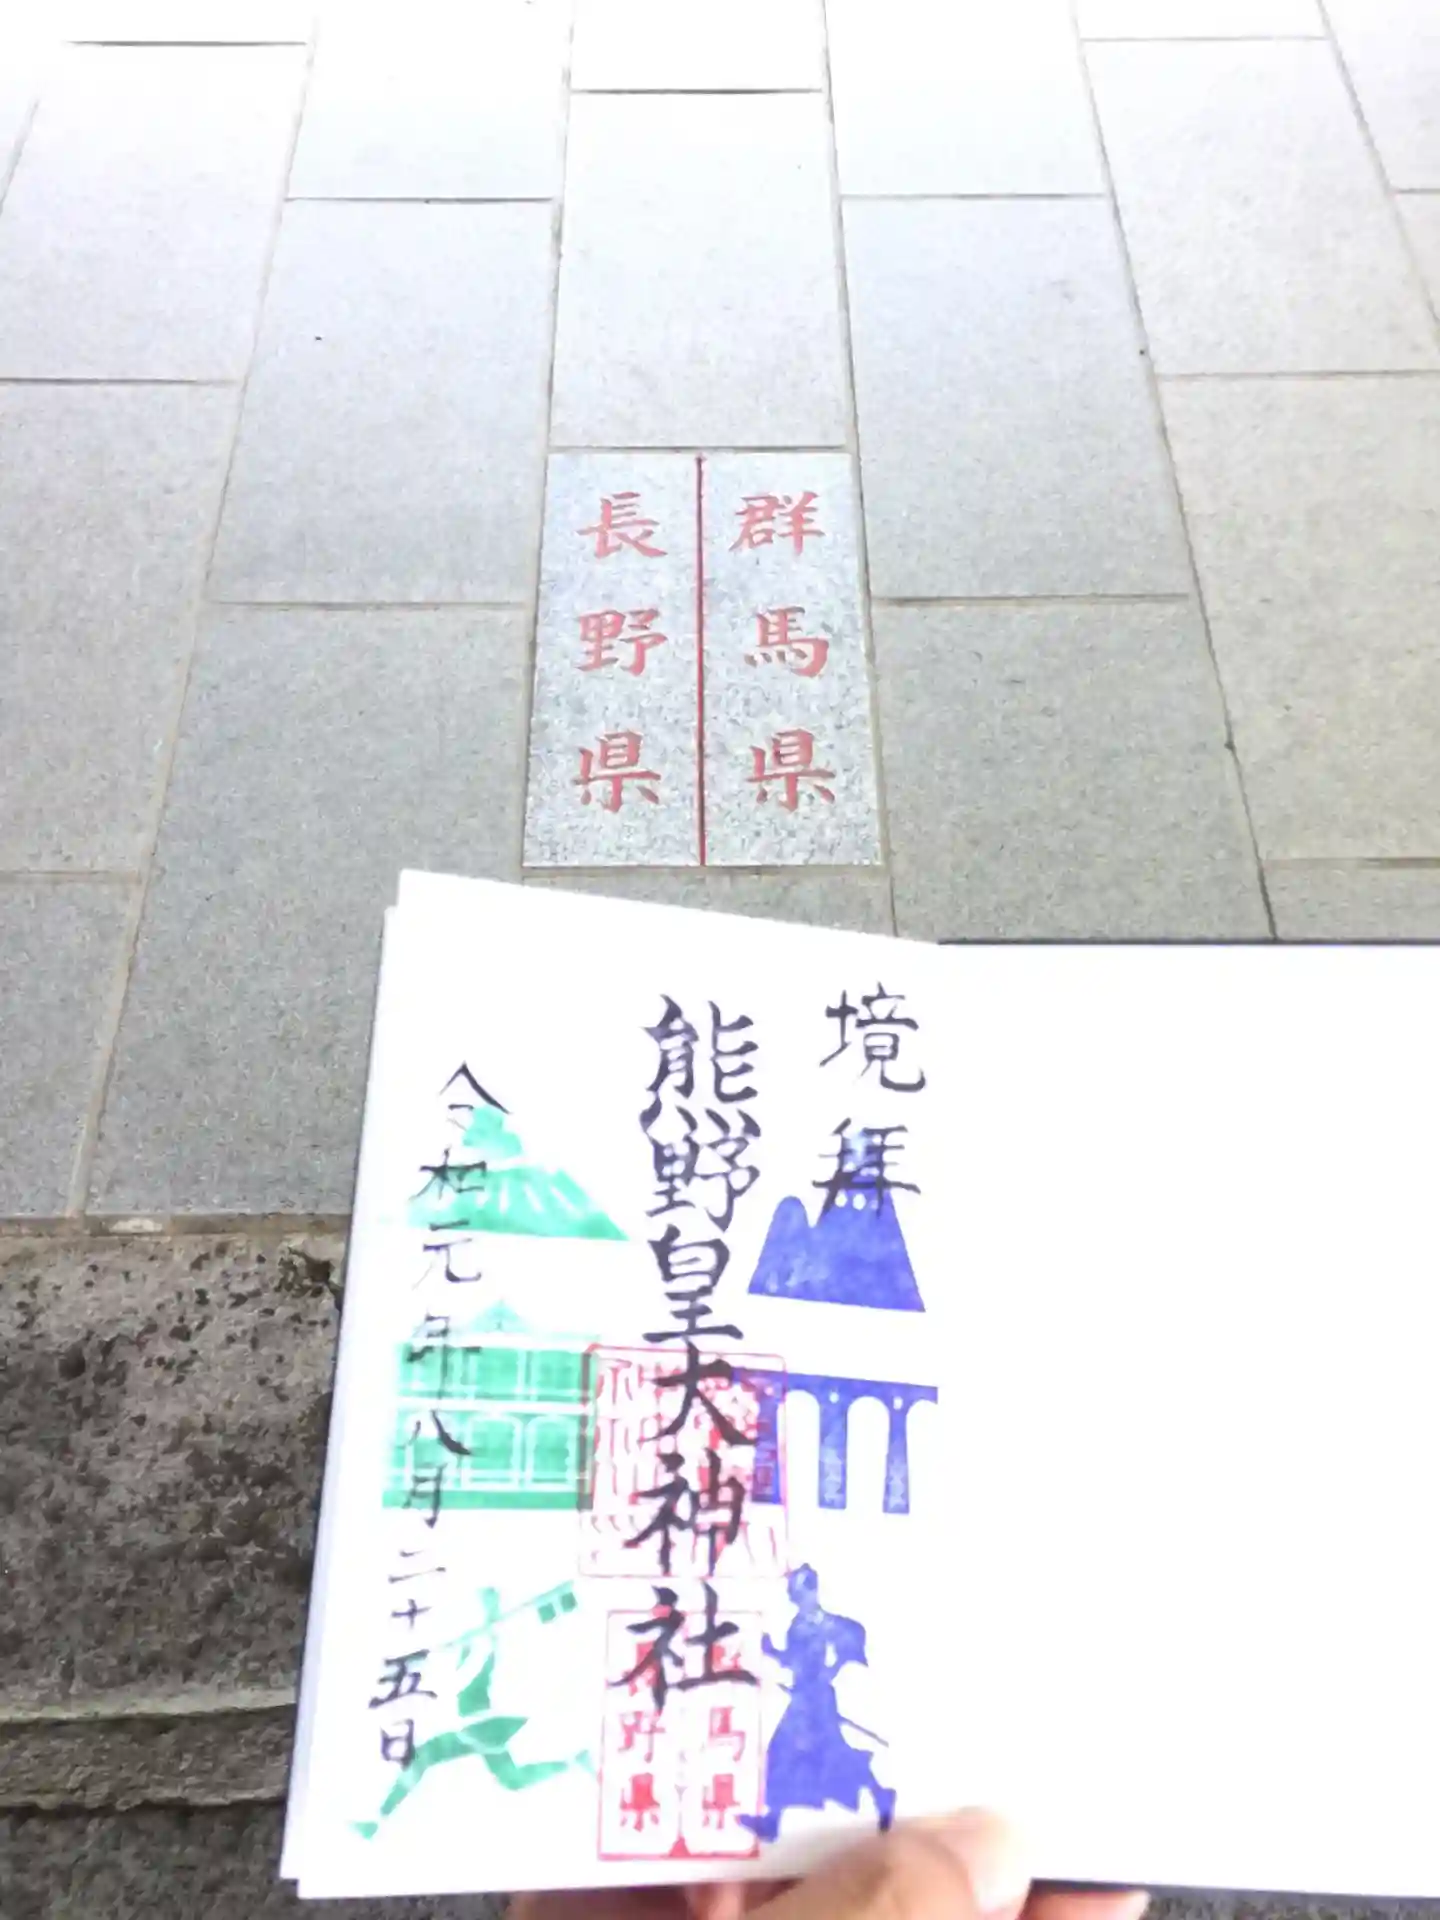 群馬県
長野県
境拜
熊野皇大神社
令和元年八月二十五日
馬県
野県